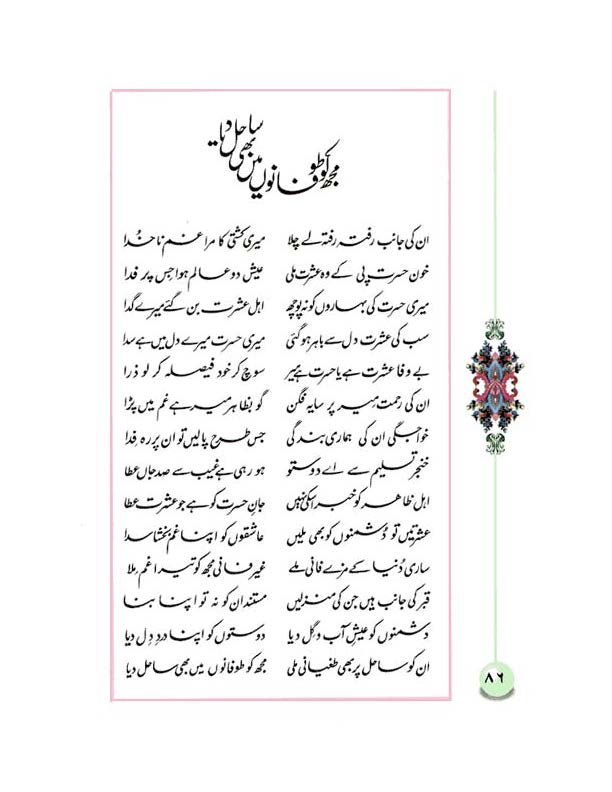 مجھ کو طوفانوں میں بھی ساحل دیا
ان کی جانب رفتہ رفتہ لے چلا میری کشتی کا مرا غم ناخُدا
خون حسرت پی کے وہ عشرت ملی عیش دو عالم ہوا جس پر فدا
میری حسرت کی بہاروں کو نہ پوچھ اہل عشرت بن گئے میرے گدا
سب کی عشرت دل سے باہر ہو گئی میری حسرت میرے دل میں ہے سدا
بے وفا عشرت ہے یا حسرت ہے میر سوچ کر خود فیصلہ کر لو ذرا
ان کی رحمت میر پر سایہ فگن گو بظاہر میر ہے غم میں پڑا
خواجگی ان کی ہماری بندگی جس طرح پالیں تو ان پر رہ فِدا
خنجر تسلیم سے اے دوستو ہو رہی ہے غیب سے صد جاں عطا
اہل ظاہر کو خبر اسکی نہیں جانِ حسرت کو ہے جو عشرت عطا
عشرتیں تو دُشمنوں کو بھی ملیں عاشقوں کو اپنا غم بخشا سدا
ساری دُنیا کے مزے فانی ملے غیر فانی مجھ کو تیرا غم مِلا
قبر کی جانب ہیں جن کی منزلیں مستند ان کو نہ تو اپنا بنا
دشمنوں کو عیشِ آب و گِل دیا دوستوں کو اپنا دردِ دِل دیا
ان کو ساحل پر بھی طغیانی ملی مجھ کو طوفانوں میں بھی ساحل دیا
۸۶